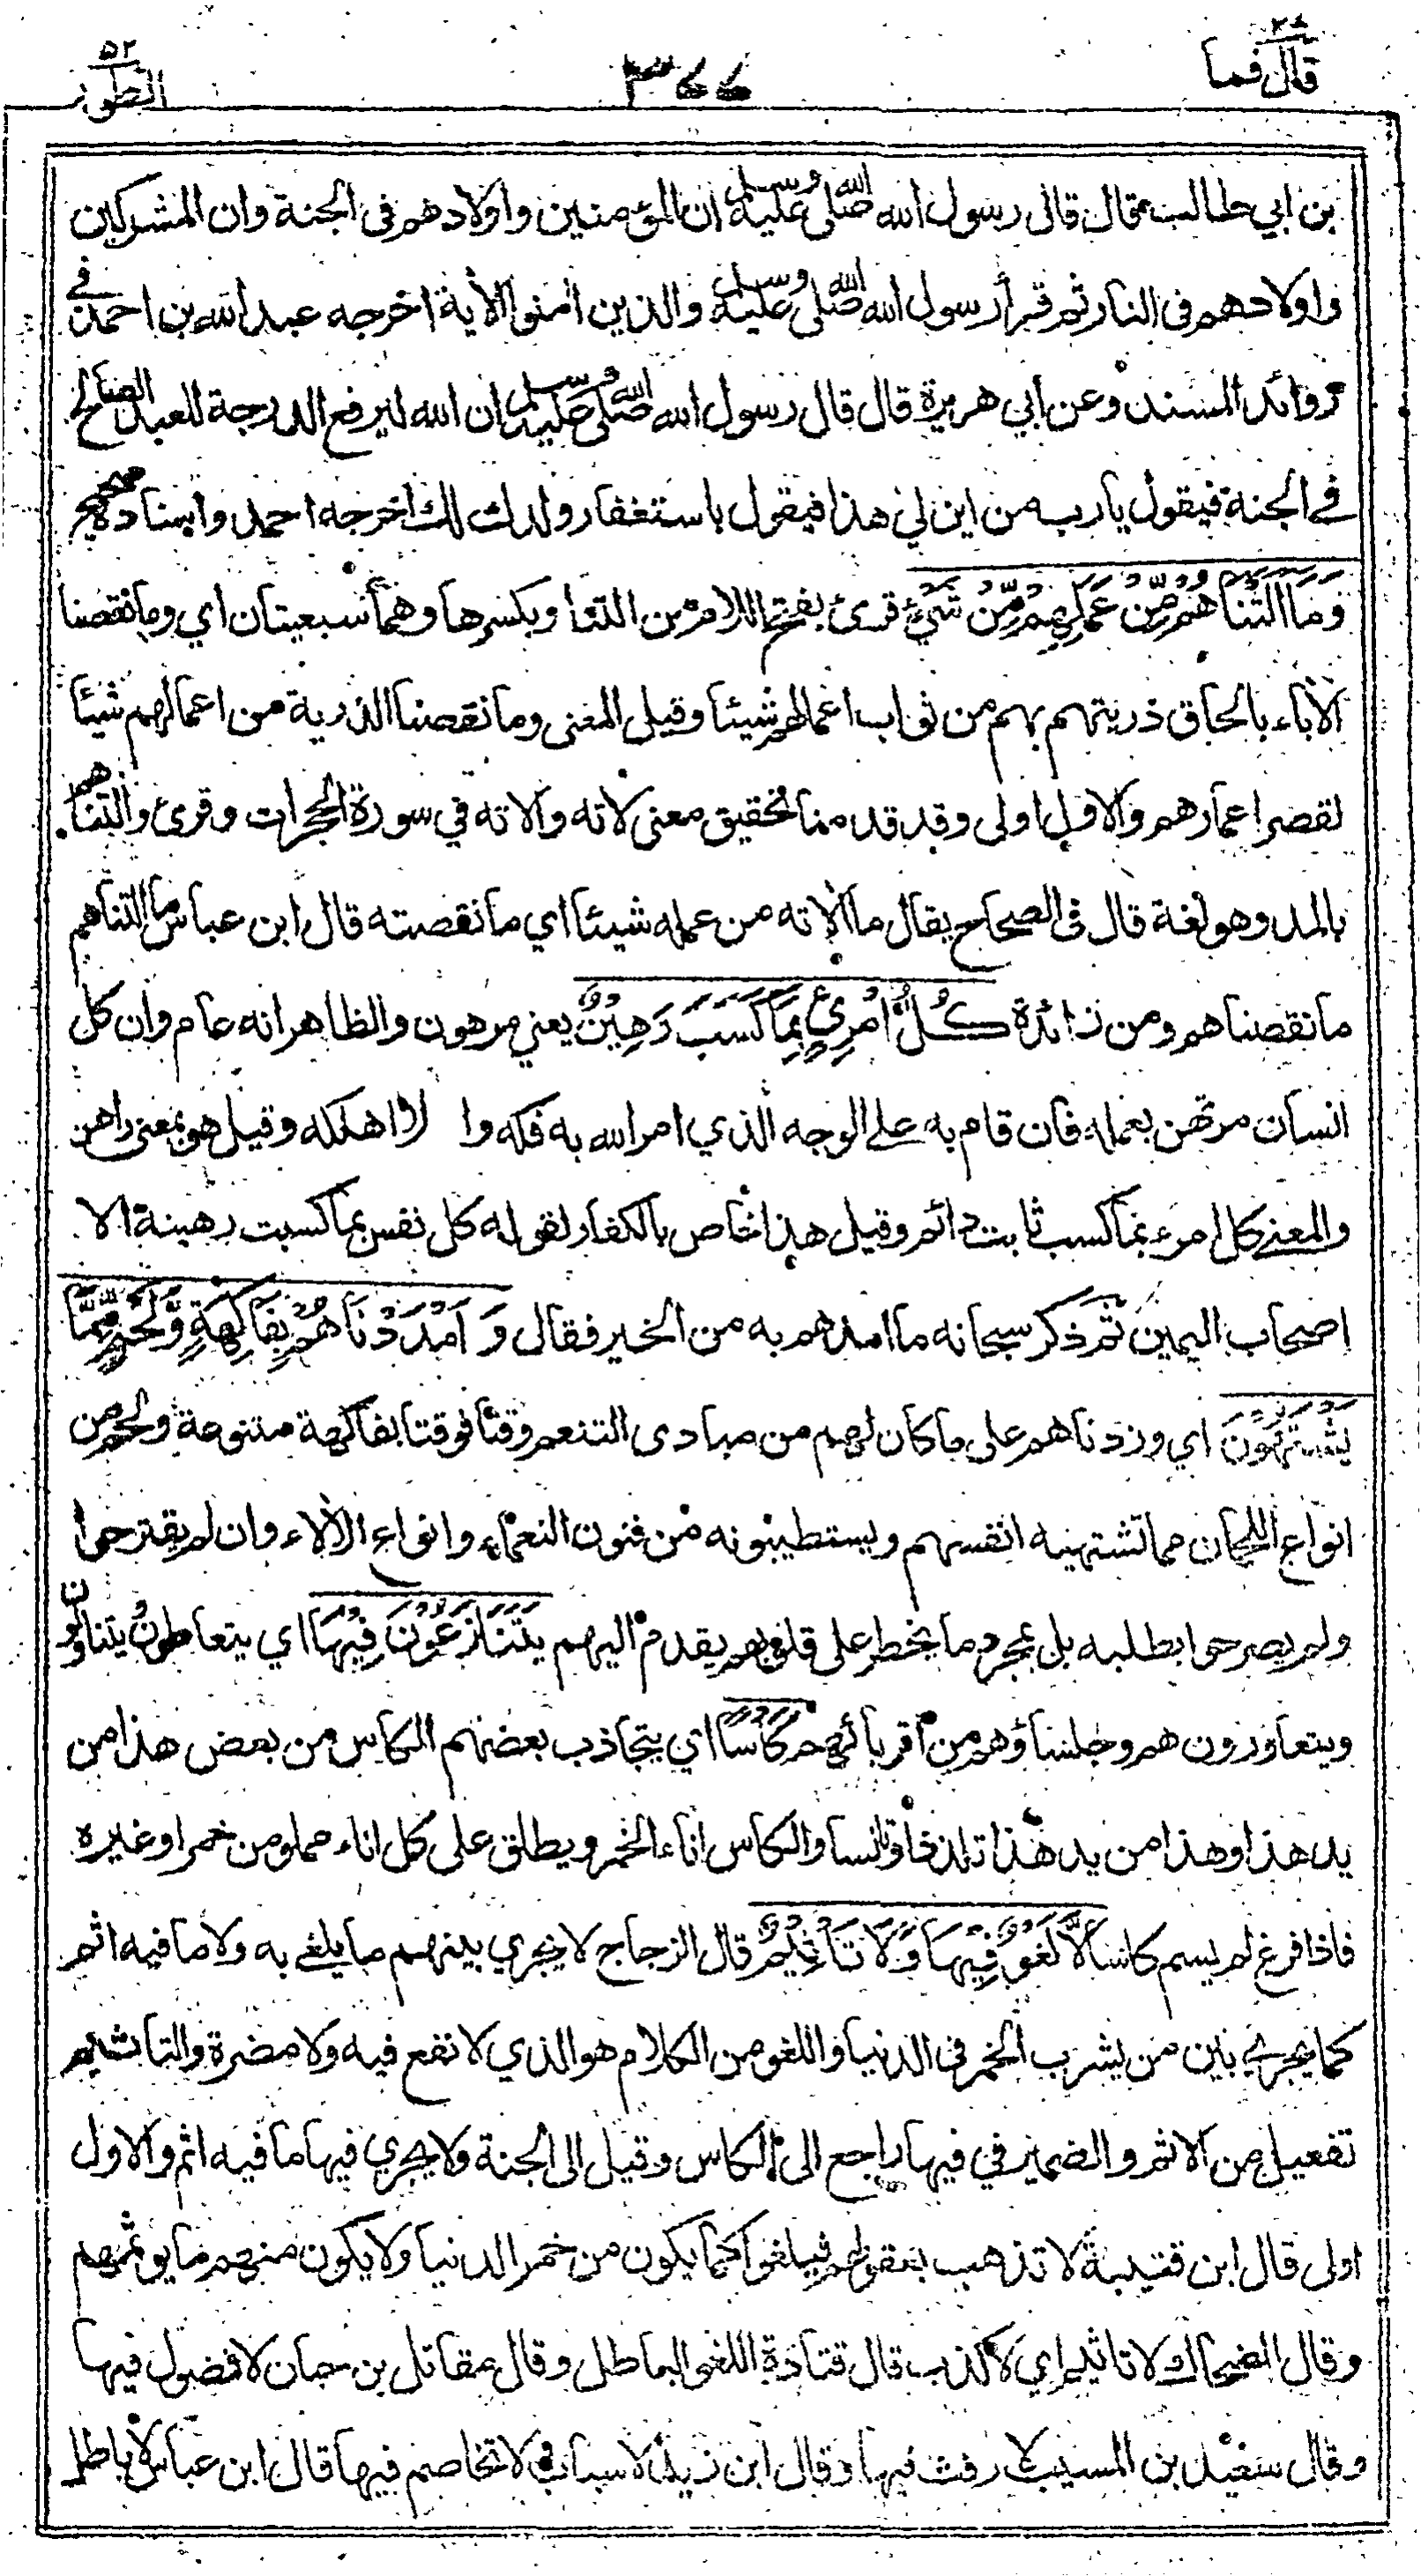 ٢٧
قال فما
٣٧٧
٥٢
الطور
بن ابي طالب قال قال رسول الله صلى الله عليه وسلم ان المؤمنين واولادهم فى الجنة وان المشركين
واولادهم فى النار ثم قرأ رسول الله صلى الله عليه وسلم والذين امنوا الأية اخرجه عبد الله بن احمد في
زوائد المسند وعن ابي هريرة قال قال رسول الله صلى الله عليه وسلم ان الله ليرفع الدرجة للعبد الصالح
في الجنة فيقول يا رب من اين لي هذا فيقول باستغفار ولدك لك اخرجه احمد واسناده صحيح
وَمَا أَلَتْنَاهُمْ مِّنْ عَمَلِهِمْ مِّنْ شَيْءٍ قرئ بفتح اللام من التنا وبكسرها وهما سبعيتان اي وما نقصنا
الأباء بالحاق ذريتهم بهم من ثواب اعمالهم شيئا وقيل المعنى وما نقصنا الذرية من اعمالهم شيئا
لقصر اعمارهم والاول اولى وقد قدمنا تحقيق معنى لاته والاته في سورة الحجرات وقرئ والتناهم
بالمد وهو لغة قال فى الصحاح يقال ما الاته من عمله شيئا اي ما نقصته قال ابن عباس ما التناهم
ما نقصناهم ومن زائدة كُلُّ امْرِئٍ بِمَا كَسَبَ رَهِينٌ يعني مرهون والظاهر انه عام وان كل
انسان مرتهن بعمله فان قام به على الوجه الذي امر الله به فكه وا لا اهلكه وقيل هو بمعنى راهن
والمعنى كل امرء بما كسب ثابت دائم وقيل هذا خاص بالكفار لقوله كل نفس بما كسبت رهينة الا
اصحاب اليمين ثم ذكر سبحانه ما امدهم به من الخير فقال وَأَمْدَدْنَاهُمْ بِفَاكِهَةٍ وَّلَحْمٍ مِّمَّا
يَشْتَهُونَ اي وزدناهم على ما كان لهم من مبادى التنعم وقتا فوقتا بفاكهة متنوعة ولحم من
انواع اللحمان مما تشتهيه انفسهم ويستطيبونه من فنون النعماء وانواع الألاء وان لم يقترحوا
ولم يصرحوا بطلبه بل بمجرد ما يخطر على قلوبهم يقدم اليهم يَتَنَازَعُونَ فِيهَا اي يتعاطون يتناولون
ويتعاورون هم وجلساؤهم من اقربائهم كَأْسًا اي يتجاذب بعضهم الكاس من بعض هذا من
يد هذا وهذا من يد هذا تلذذا وتانسا والكاس اناء الخمر ويطلق على كل اناء مملو من خمر او غيره
فاذا فرغ لم يسم كاسا لَّا لَغْوٌ فِيهَا وَلَا تَأْثِيمٌ قال الزجاج لا يجري بينهم ما يلغى به ولا ما فيه اثم
كما يجري بين من يشرب الخمر فى الدنيا واللغو من الكلام هو الذي لا نفع فيه ولا مضرة والتاثيم
تفعيل من الاثم والضمير في فيها راجع الى الكاس وقيل الى الجنة ولا يجري فيها ما فيه اثم والاول
اولى قال ابن قتيبة لا تذهب بعقولهم فيلغوا كما يكون من خمر الدنيا ولا يكون منهم ما يوثمهم
وقال الضحاك ولا تاثيم اي لا كذب قال قتادة اللغو الباطل وقال مقاتل بن حبان لا فضول فيها
وقال سعيد بن المسيب لا رفث فيها وقال ابن زيد لا سباب ولا تخاصم فيها قال ابن عباس لا باطل